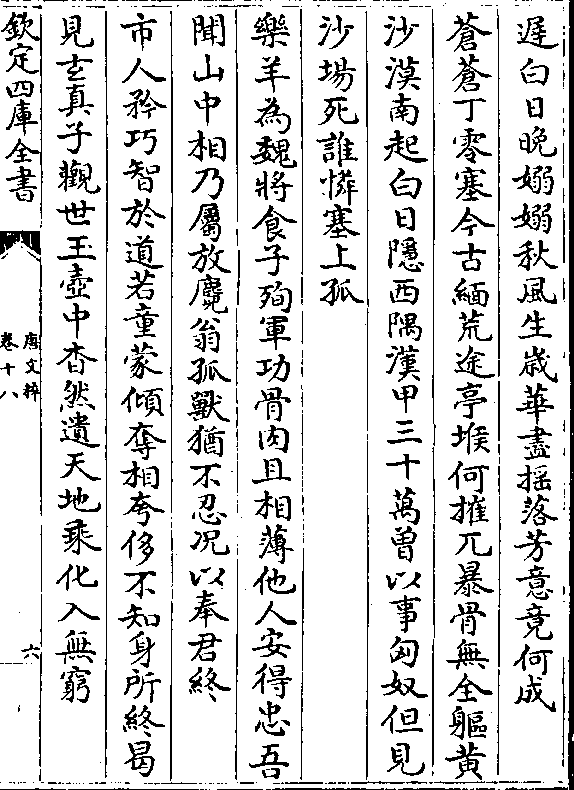 遲白日晚嫋嫋秋風生歳華盡揺落芳意竟何成
蒼蒼丁零塞今古緬荒途亭堠何摧兀暴骨無全軀黄
沙漠南起白日隱西隅漢甲三十萬曽以事匈奴但見
沙塲死誰憐塞上孤
樂羊為魏將食子殉軍功骨肉且相薄他人安得忠吾
聞山中相乃屬放麑翁孤獸猶不忍况以奉君終
市人矜巧智於道若童蒙傾奪相夸侈不知身所終曷
見玄真子觀世玉壺中杳然遺天地乗化入無窮
欽定四庫全書
唐文粹
卷十八
六